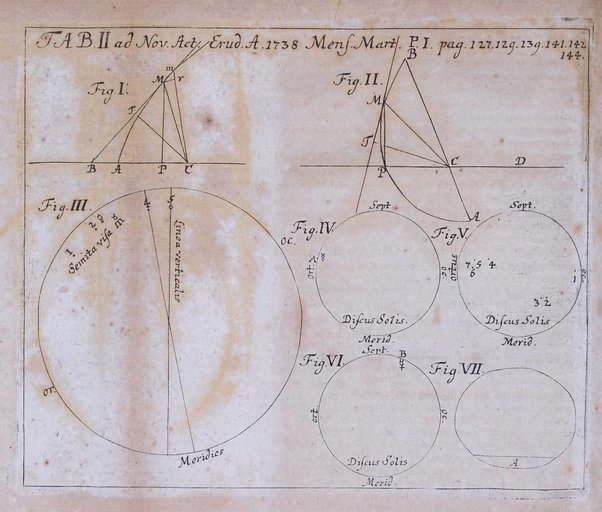 TAB II ad Nov. Act. Erud. A. 1738 Menſ. Mart. P. I. pag. 127. 129. 139. 141. 142
144.
Fig I.
m
M r
T
B A P C
Fig II.
B
M
T
P C D
A
Fig III
1 2 3
Semita viſa ☿
4 5
Linea verticalis
oc.
or.
Meridies
Fig IV
Sept
ort.
oc.
Diſcus Solis.
Merid.
Fig V
Sept.
ortus
7 5 4
6
1
oc.
3 2
Diſcus Solis
Merid.
Fig VI
Sept.
B
ort.
oc.
Diſcus Solis
Merid.
Fig VII
A